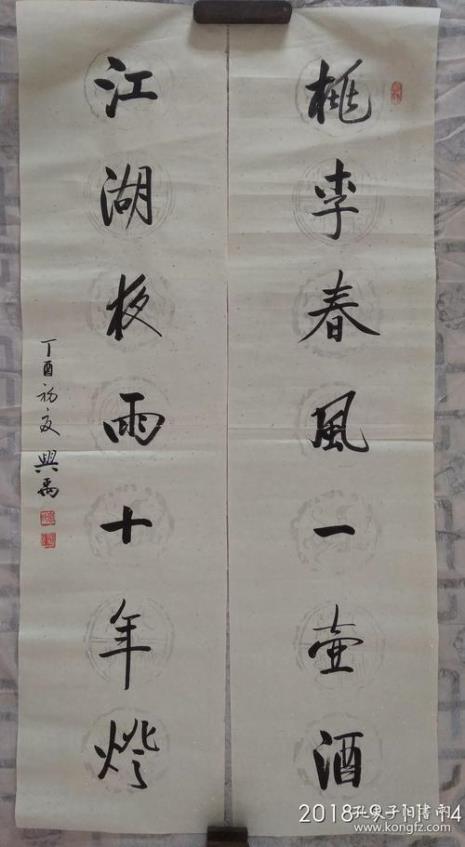 桃李春風一壺酒
江湖夜雨十年燈
丁酉初夏興禹
孔夫子旧书网
www.kongfz.com